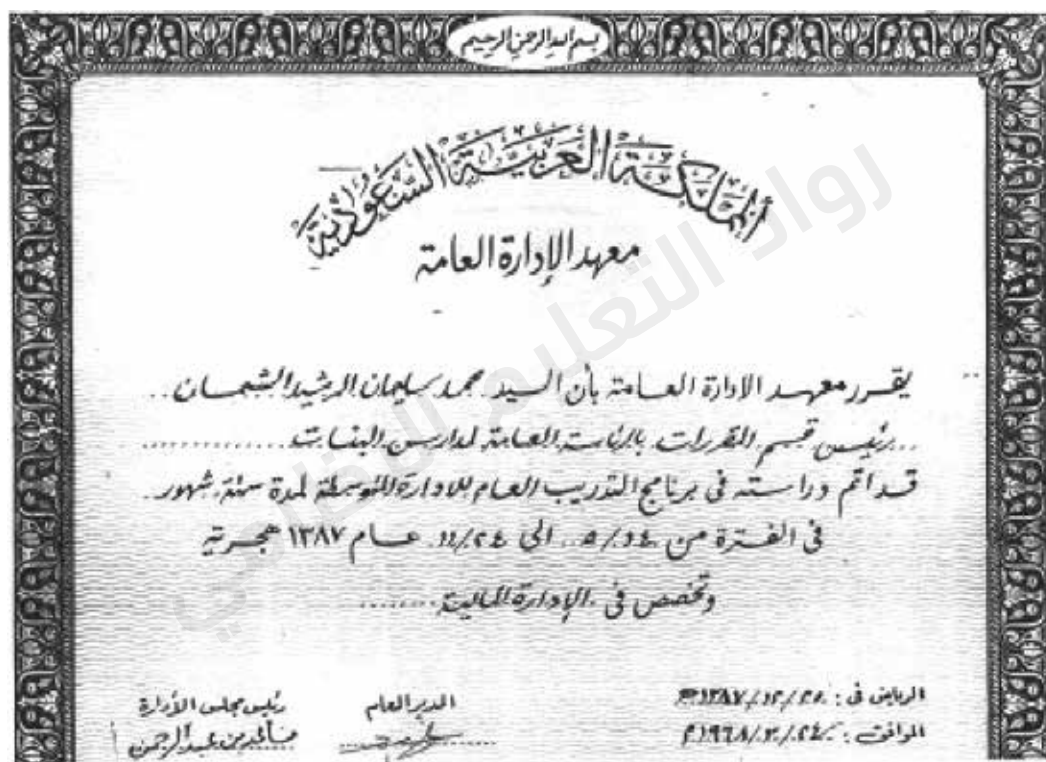 بسم الله الرحمن الرحيم
المملكة العربية السعودية
معهد الإدارة العامة
يقرر معهد الادارة العامة بأن السيد محمد سليمان الرشيد الشمسان ..
... رئيس قسم المقررات بالرئاسة العامة لمدارس البنات ............
قد اتم دراسته في برنامج التدريب العام للادارة المتوسطة لمدة ستة شهور ..
في الفترة من ٢٤/٥ .. الى ٢٤/١١ . عام ١٣٨٧ هجرية
وتخصص في . الإدارة المالية ........
الرياض في : ٢٥/١٢/١٣٨٧ هـ
الموافق : ٢٤/٣/١٩٦٨ م
المدير العام
رئيس مجلس الأدارة
مساعد بن عبد الرحمن
رواد التعليم النظامي